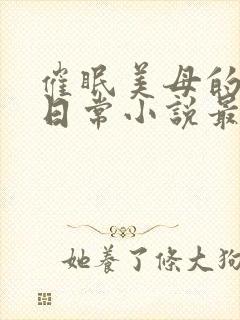 催眠美母的
日常小說最
她養了條大狗